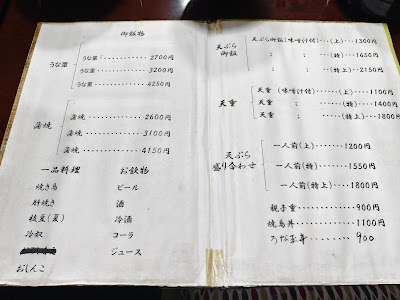 御飯物
うな重 うな重・・・・・・・・・・・2700円
うな重・・・・・・・・・・・3200円
うな重・・・・・・・・・・・4250円
蒲焼 蒲焼・・・・・・・・・・・2600円
蒲焼・・・・・・・・・・・3100円
蒲焼・・・・・・・・・・・4150円
一品料理 お飲物
焼き鳥 ビール
肝焼き 酒
枝豆(夏) 冷酒
冷奴 コーラ
ジュース
おしんこ
天ぷら御飯 天ぷら御飯(味噌汁付)・・・(上)・・・1300円
〃 〃 (特)・・・1650円
〃 〃 (特上)・・・2150円
天重 天重 (味噌汁付)・・・・(上)・・・1100円
〃 〃 (特)・・・1400円
〃 〃 (特上)・・・1800円
天ぷら盛り合わせ 一人前(上)・・・・1200円
一人前(特)・・・・1550円
一人前(特上)・・・・1800円
親子重・・・・・・・900円
焼鳥丼・・・・・・・1100円
うな玉丼・・・・・900